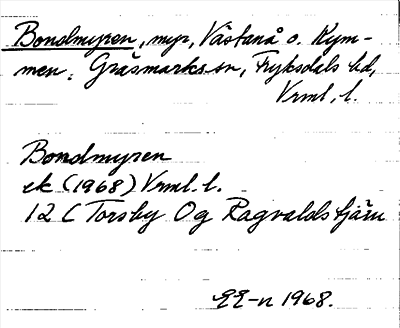 Bondmyren, myr, Västanå o. Kym-
men, Gräsmarks sn, Fryksdals hd,
Vrml. l.
Bondmyren
ek (1968) Vrml. l.
12 C Torsby Og Ragvaldstjärn
EE-n 1968.